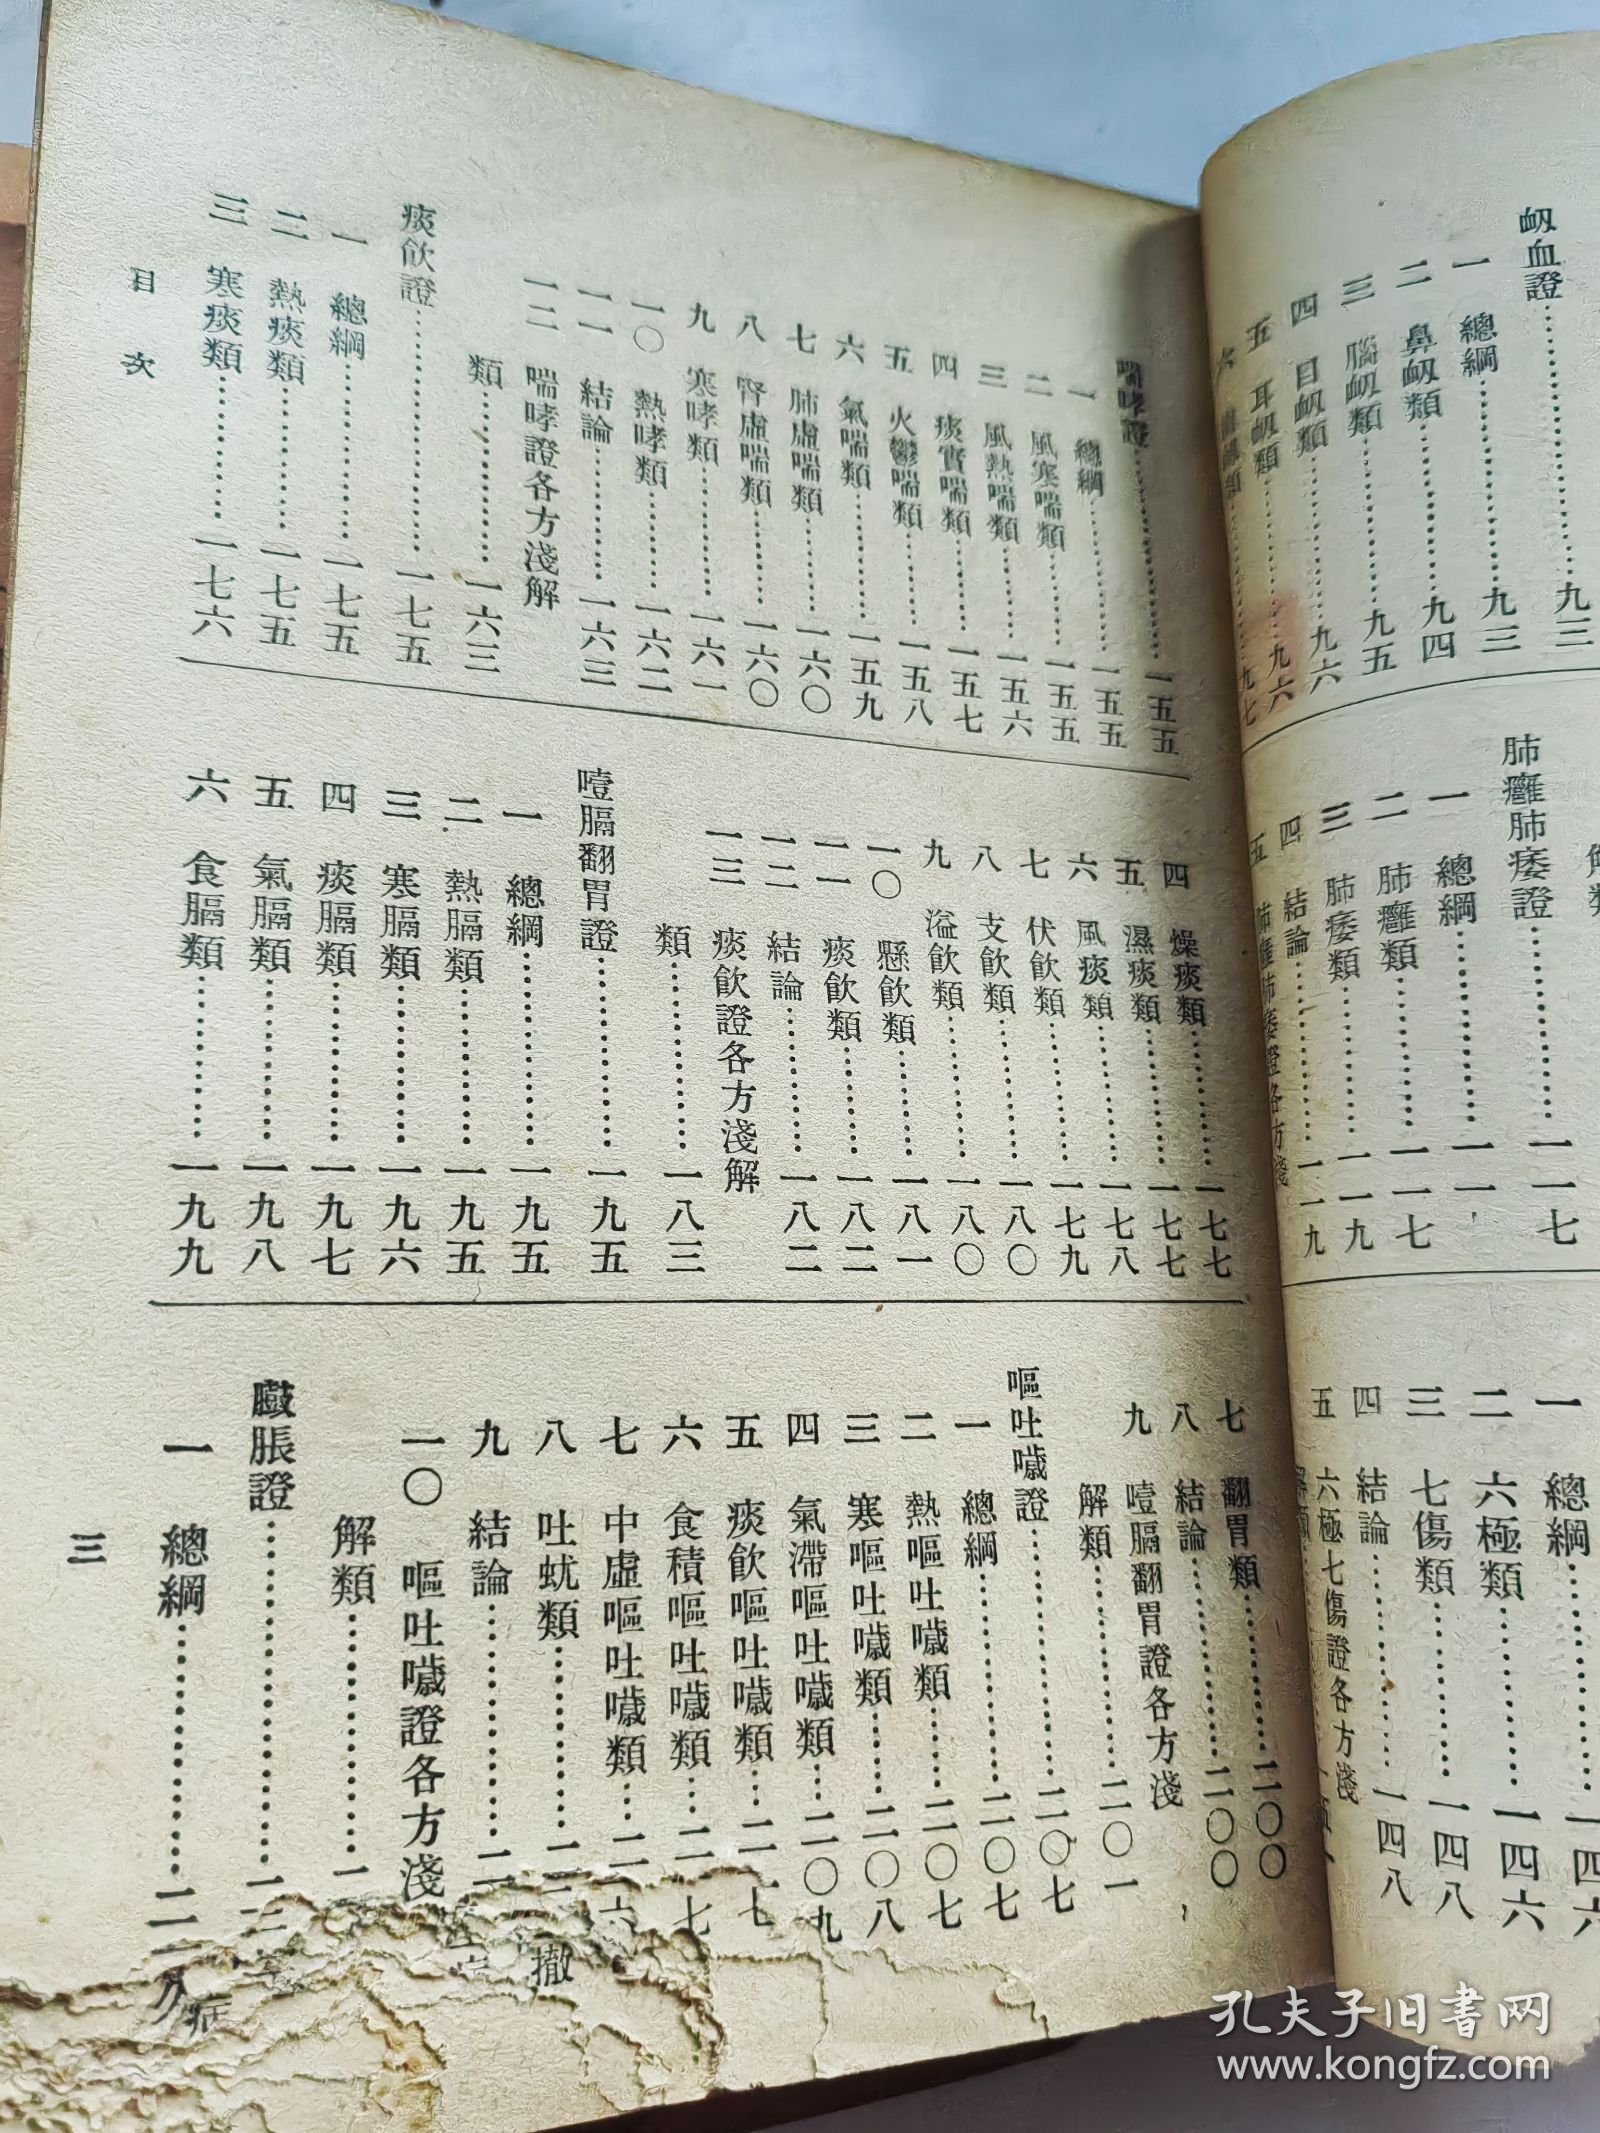 衄血證……九三
一 總綱……九三
二 鼻衄類……九四
三 腦衄類……九五
四 目衄類……九六
五 耳衄類……九六
肺癰肺痿證……一一七
一 總綱……一一
二 肺癰類……一一七
三 肺痿類……一一九
四 結論……一一九
五 肺癰肺痿證各方淺
一 總綱……一四六
二 六極類……一四六
三 七傷類……一四八
四 結論……一四八
五 六極七傷證各方淺
喘哮證……一五五
一 總綱……一五五
二 風寒喘類……一五五
三 風熱喘類……一五六
四 痰實喘類……一五七
五 火鬱喘類……一五八
六 氣喘類……一五九
七 肺虛喘類……一六〇
八 腎虛喘類……一六〇
九 寒哮類……一六一
一〇 熱哮類……一六二
一一 結論……一六三
一二 喘哮證各方淺解
類……一六三
痰飲證……一七五
一 總綱……一七五
二 熱痰類……一七五
三 寒痰類……一七六
四 燥痰類……一七七
五 濕痰類……一七七
六 風痰類……一七八
七 伏飲類……一七九
八 支飲類……一八〇
九 溢飲類……一八〇
一〇 懸飲類……一八一
一一 痰飲類……一八二
一二 結論……一八二
一三 痰飲證各方淺解
類……一八三
噎膈翻胃證……一九五
一 總綱……一九五
二 熱膈類……一九五
三 寒膈類……一九六
四 痰膈類……一九七
五 氣膈類……一九八
六 食膈類……一九九
七 翻胃類……二〇〇
八 結論……二〇〇
九 噎膈翻胃證各方淺
解類……二〇一
嘔吐噦證……二〇七
一 總綱……二〇七
二 熱嘔吐噦類……二〇七
三 寒嘔吐噦類……二〇八
四 氣滯嘔吐噦類……二〇九
五 痰飲嘔吐噦類……二一七
六 食積嘔吐噦類……二一七
七 中虛嘔吐噦類……二
八 吐蚘類……二
九 結論……二
一〇 嘔吐噦證各方淺
解類……
臌脹證……二
一 總綱……二
目次
三
撤
症
孔夫子旧书网
www.kongfz.com